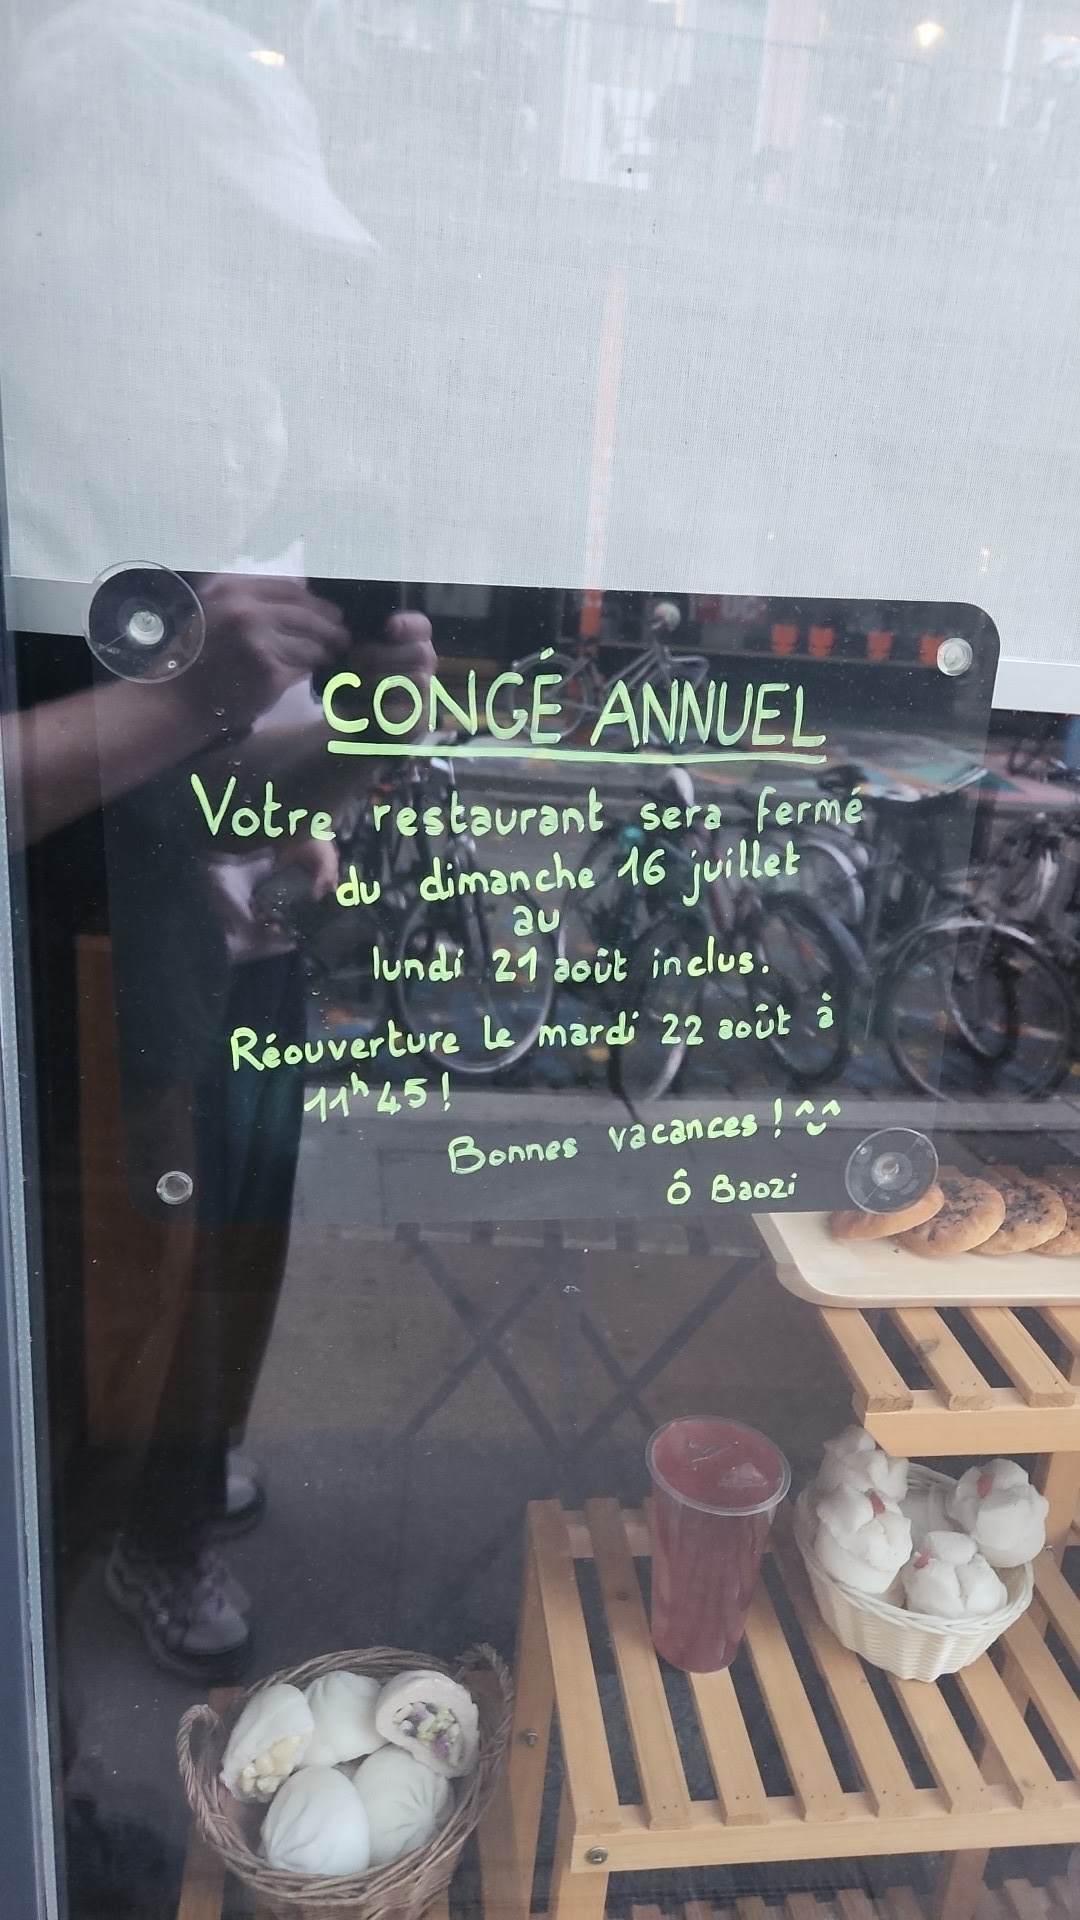 CONGÉ ANNUEL
Votre restaurant sera fermé
du dimanche 16 juillet
au
lundi 21 août inclus.
Réouverture le mardi 22 août à
11h45!
Bonnes vacances ! ^^
Ô Baozi